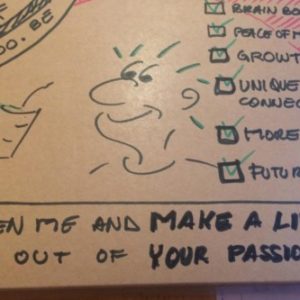 OO.BE
BRAIN BO
PEACE OF M
GROWT
UNIQUE
CONNEC
MORE
FUTUR
EN ME AND MAKE A LI
OUT OF YOUR PASSIO